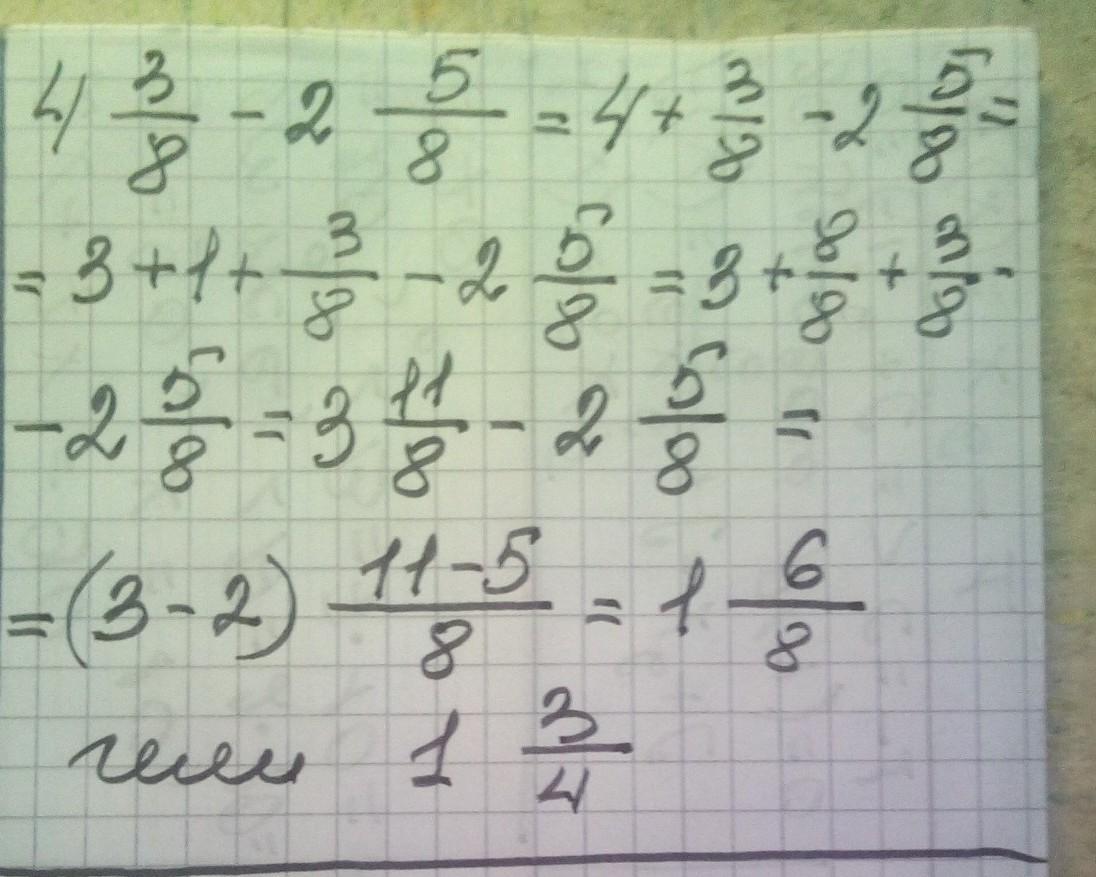 4 3/8 - 2 5/8 = 4 + 3/8 - 2 5/8 =
= 3 + 1 + 3/8 - 2 5/8 = 3 + 8/8 + 3/8 -
- 2 5/8 = 3 11/8 - 2 5/8 =
= (3 - 2) (11 - 5)/8 = 1 6/8
или 1 3/4